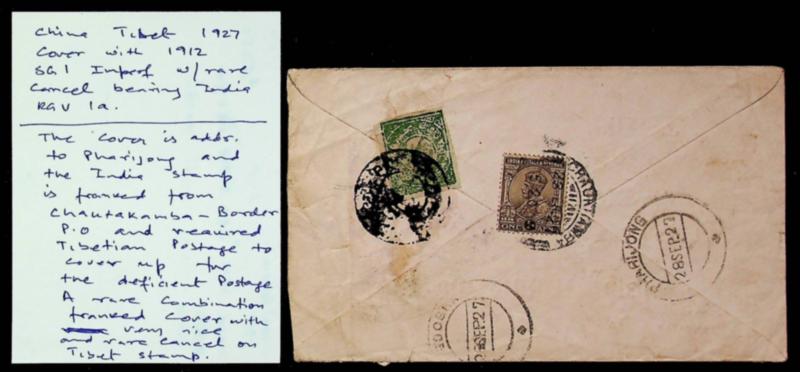 China Tibet 1927
Cover with 1912
SG1 Imperf w/rare
Cancel bearing India
KGV 1a.
The Cover is addr.
to Pharijong and
the India stamp
is franked from
Chautakamba - Border
P.O and required
Tibetian Postage to
cover up for
the deficient Postage
A rare Combination
franked Cover with
very nice
and rare cancel on
Tibet stamp.
PHARIJONG
28 SEP. 27
SEP. 27